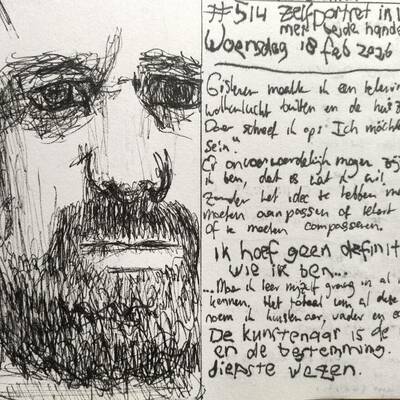 #514 zelfportret in
met beide hande
Woensdag 18 feb 2026
Gisteren maakte ik een
wolkenlucht buiten en de
Daar schreef ik op: Ich möchte
sein".
Er onvoorwaardelijk mogen zij
ik ben, dat is wat ik wil
zonder het idee te hebben me
moeten aanpassen of
of te moeten compasseren.
ik hoef geen definit
wie ik ben...
...Maar ik leer mijzelf graag in al
kennen. Het totaal van al deze
noem ik kunstenaar, vader en
De kunstenaar is de
en de bestemming.
diepste wezen.